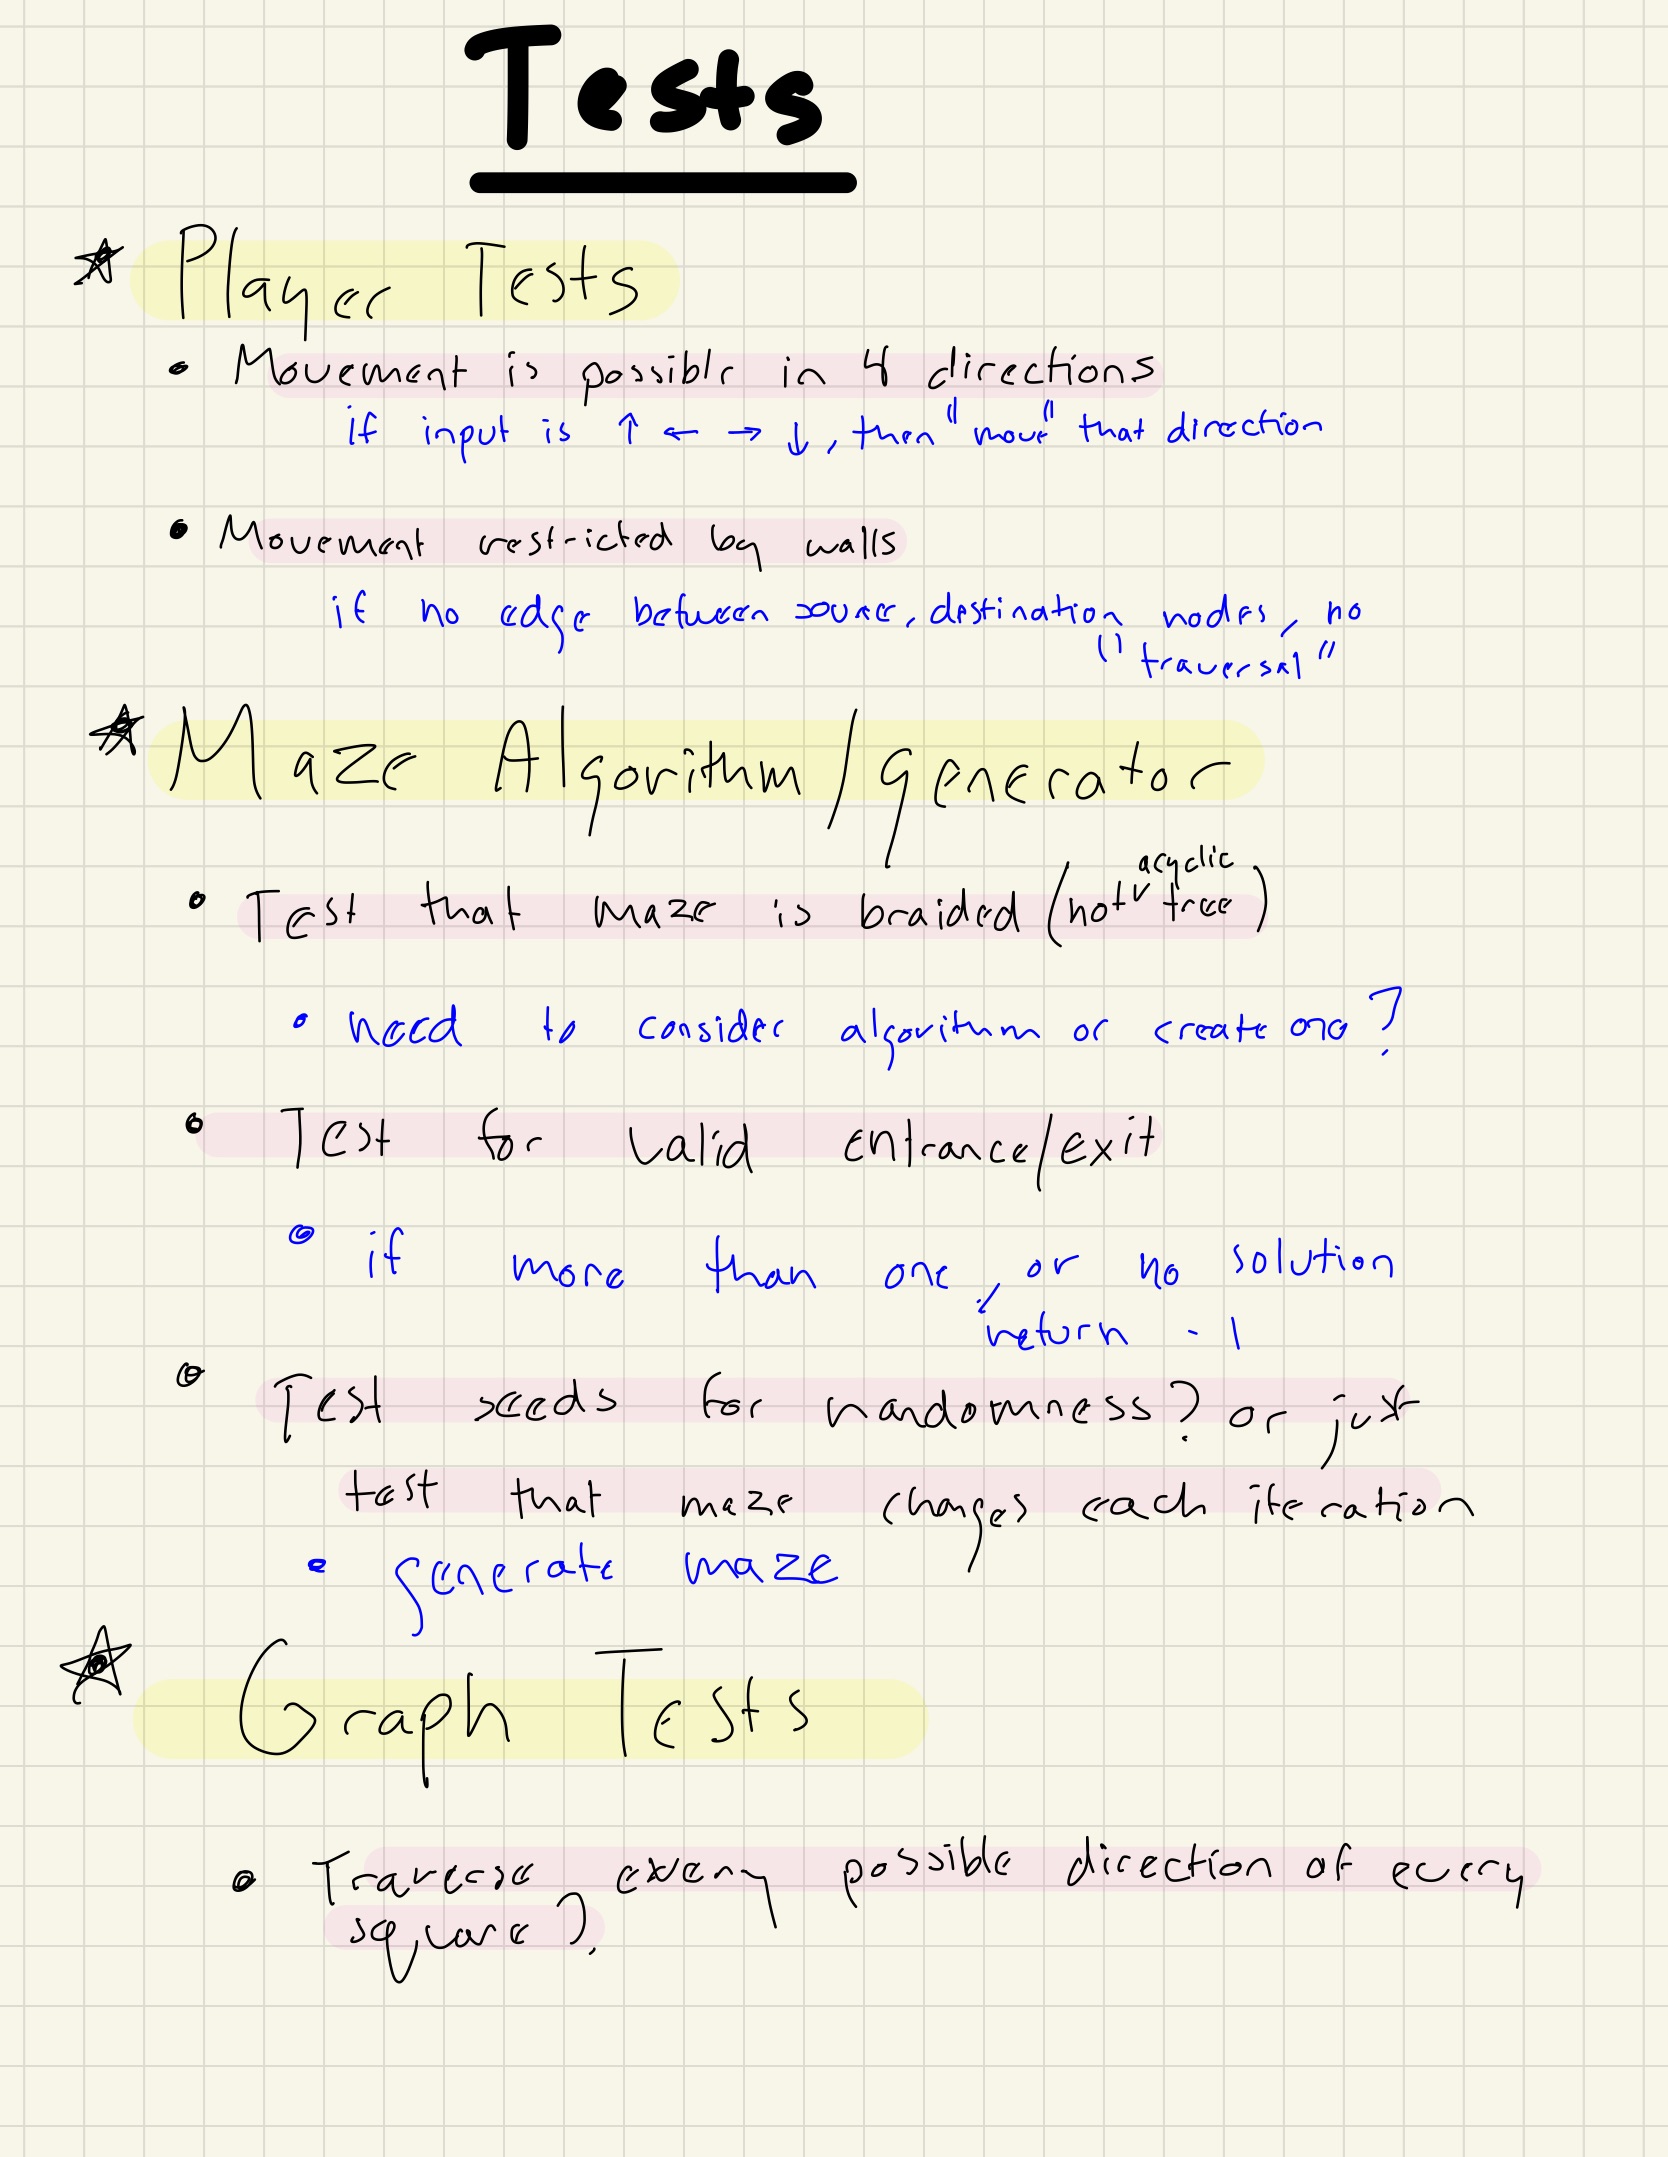 Tests
Player Tests
• Movement is possible in 4 directions
if input is ↑ ← → ↓, then "move" that direction
• Movement restricted by walls
if no edge between source, destination nodes, no
"traversal"
Maze Algorithm/generator
acyclic
• Test that maze is braided (not ˅ tree)
• need to consider algorithm or create one?
• Test for valid entrance/exit
• if more than one, or no solution
return -1
• Test seeds for randomness? or just
test that maze changes each iteration
• generate maze
Graph Tests
• Traverse every possible direction of every
square?